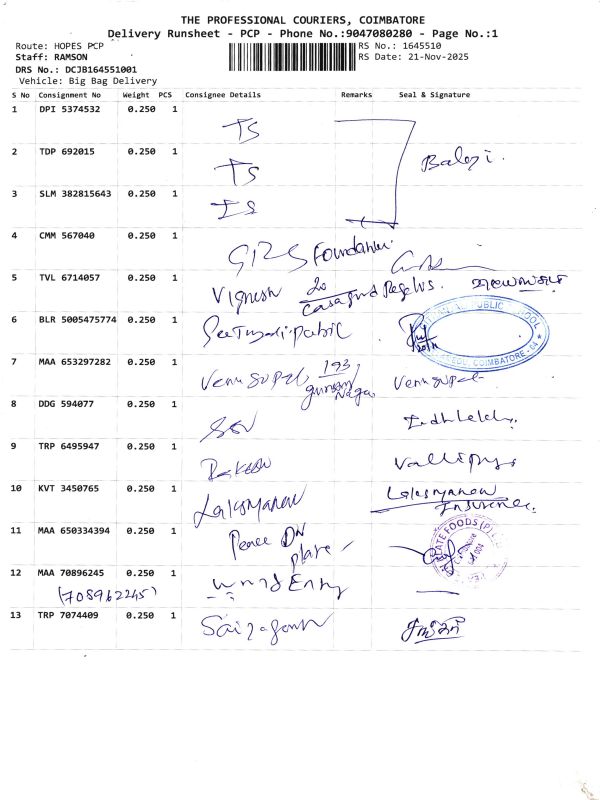 THE PROFESSIONAL COURIERS, COIMBATORE
Delivery Runsheet - PCP - Phone No.:9047080280 - Page No.:1
Route: HOPES PCP RS No.: 1645510
Staff: RAMSON RS Date: 21-Nov-2025
DRS No.: DCJB164551001
Vehicle: Big Bag Delivery
S No Consignment No Weight PCS Consignee Details Remarks Seal & Signature
1 DPI 5374532 0.250 1 TS
2 TDP 692015 0.250 1 TS
3 SLM 382815643 0.250 1 TS
4 CMM 567040 0.250 1 Foundation
5 TVL 6714057 0.250 1 Vignesh
6 BLR 5005475774 0.250 1 PUBLIC SCHOOL COIMBATORE
7 MAA 653297282 0.250 1 Venugopal 193 Nagar Venugopal
8 DDG 594077 0.250 1
9 TRP 6495947 0.250 1 Rakesh
10 KVT 3450765 0.250 1 Laksmanan Laksmanan
Insurance
11 MAA 650334394 0.250 1 Peace ON
FOODS (P)
12 MAA 70896245 0.250 1
(708962245)
13 TRP 7074409 0.250 1